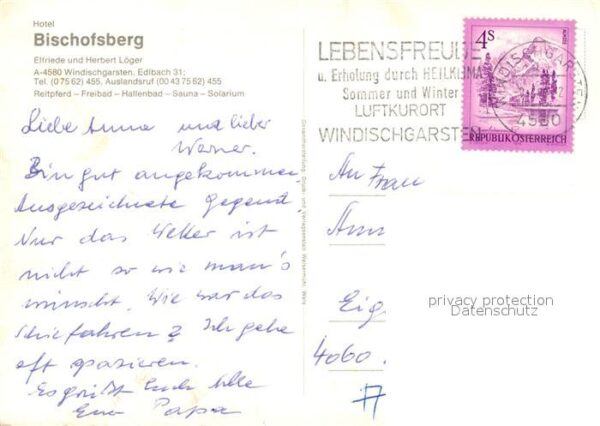 Hotel
Bischofsberg
Elfriede und Herbert Löger
A-4580 Windischgarsten, Edlbach 31;
Tel. (0 75 62) 455, Auslandsruf (00 43 75 62) 455
Reitpferd – Freibad – Hallenbad – Sauna – Solarium
Liebe Anna und lieber
Werner.
Bin gut angekommen,
Ausgezeichnete Gegend
Nur das Wetter ist
nicht so wie man's
wünscht. Wie war das
Schiefahren? Ich gehe
oft spazieren.
Es grüßt Euch alle
Euer Papa
LEBENSFREUDE
u. Erholung durch HEILKLIMA
Sommer und Winter
LUFTKURORT
WINDISCHGARSTEN
4S
REPUBLIK ÖSTERREICH
WINDISCHGARSTEN
4580
An Frau
4060.
privacy protection
Datenschutz